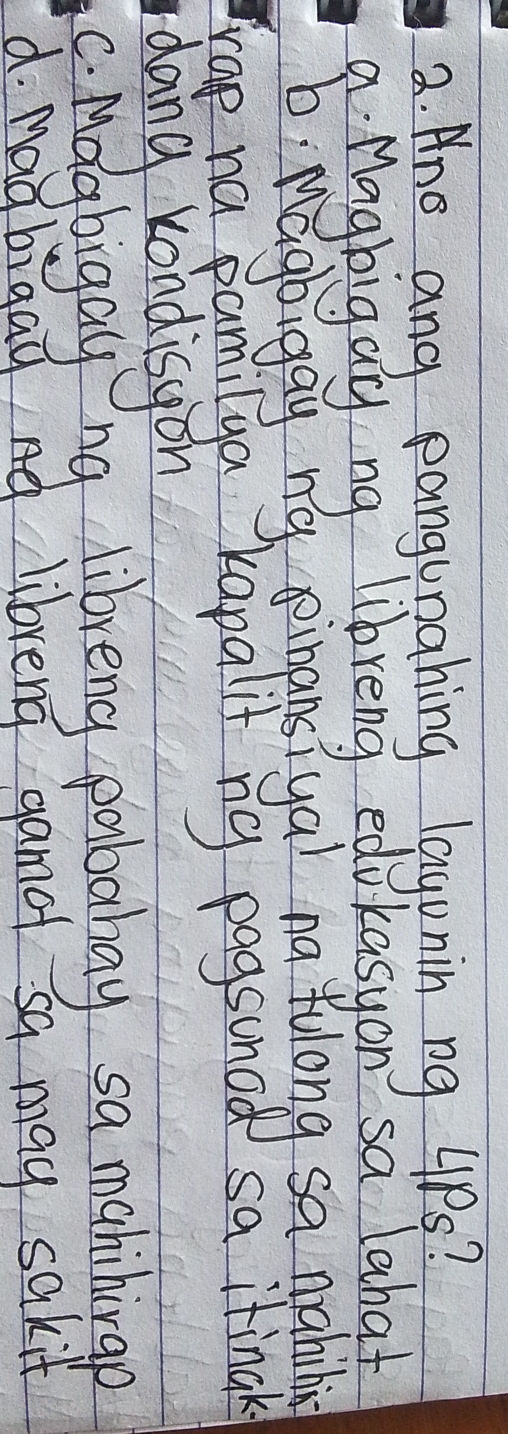 2. Ano ang pangunahing layunin ng 4Ps?
a. Magbigay ng libreng edukasyon sa lahat
b. Magbigay ng pinansiyal na tulong sa mahihi-
rap na pamilya kapalit ng pagsunod sa itinak-
dang kondisyon
c. Magbigay ng libreng pabahay sa mahihirap
d. Magbigay ng libreng gamot sa may sakit